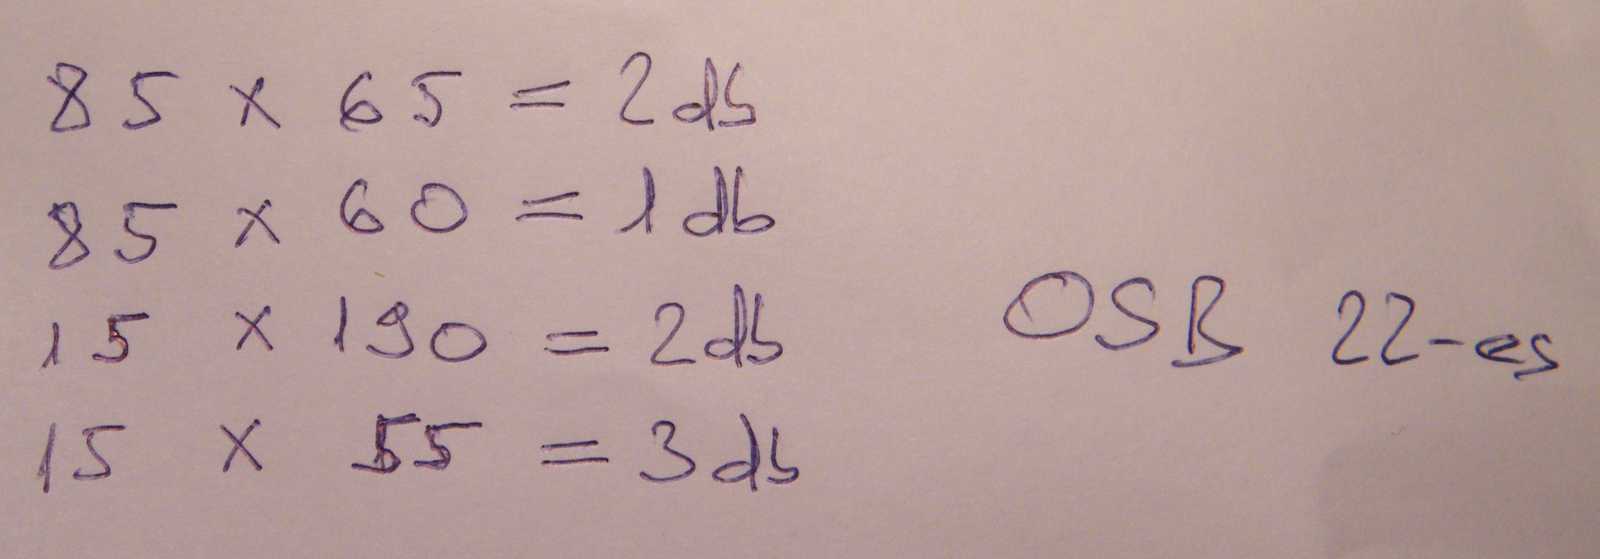 85 x 65 = 2db
85 x 60 = 1db
15 x 190 = 2db
15 x 55 = 3db
OSB 22-es